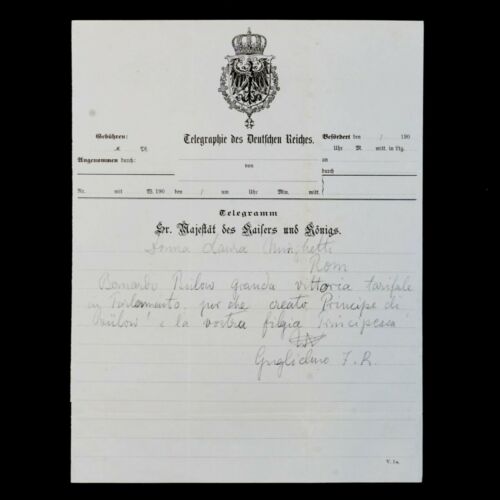 Gebühren:
M. Pf.
Angenommen durch:
Telegraphie des Deutschen Reiches.
von
Befördert den / 190
Uhr M. mitt. in Ltg.
an
durch
Nr. mit W. 190 den / um Uhr Min. mitt.
Telegramm
Sr. Majestät des Kaisers und Königs.
Donna Laura Minghetti
Rom
Bernardo Bülow granda vittoria tarifale
en Parlamento, per che creato Principe di
Bülow! e la vostra figgia Principessa
Guglielmo I. R.
V. 1a.